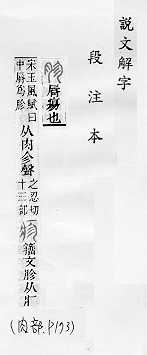 說文解字
段注本
脣瘍也
宋玉風賦曰
中脣爲胗
从肉㐱聲
之忍切
十三部
籒文胗从疒
(肉部.